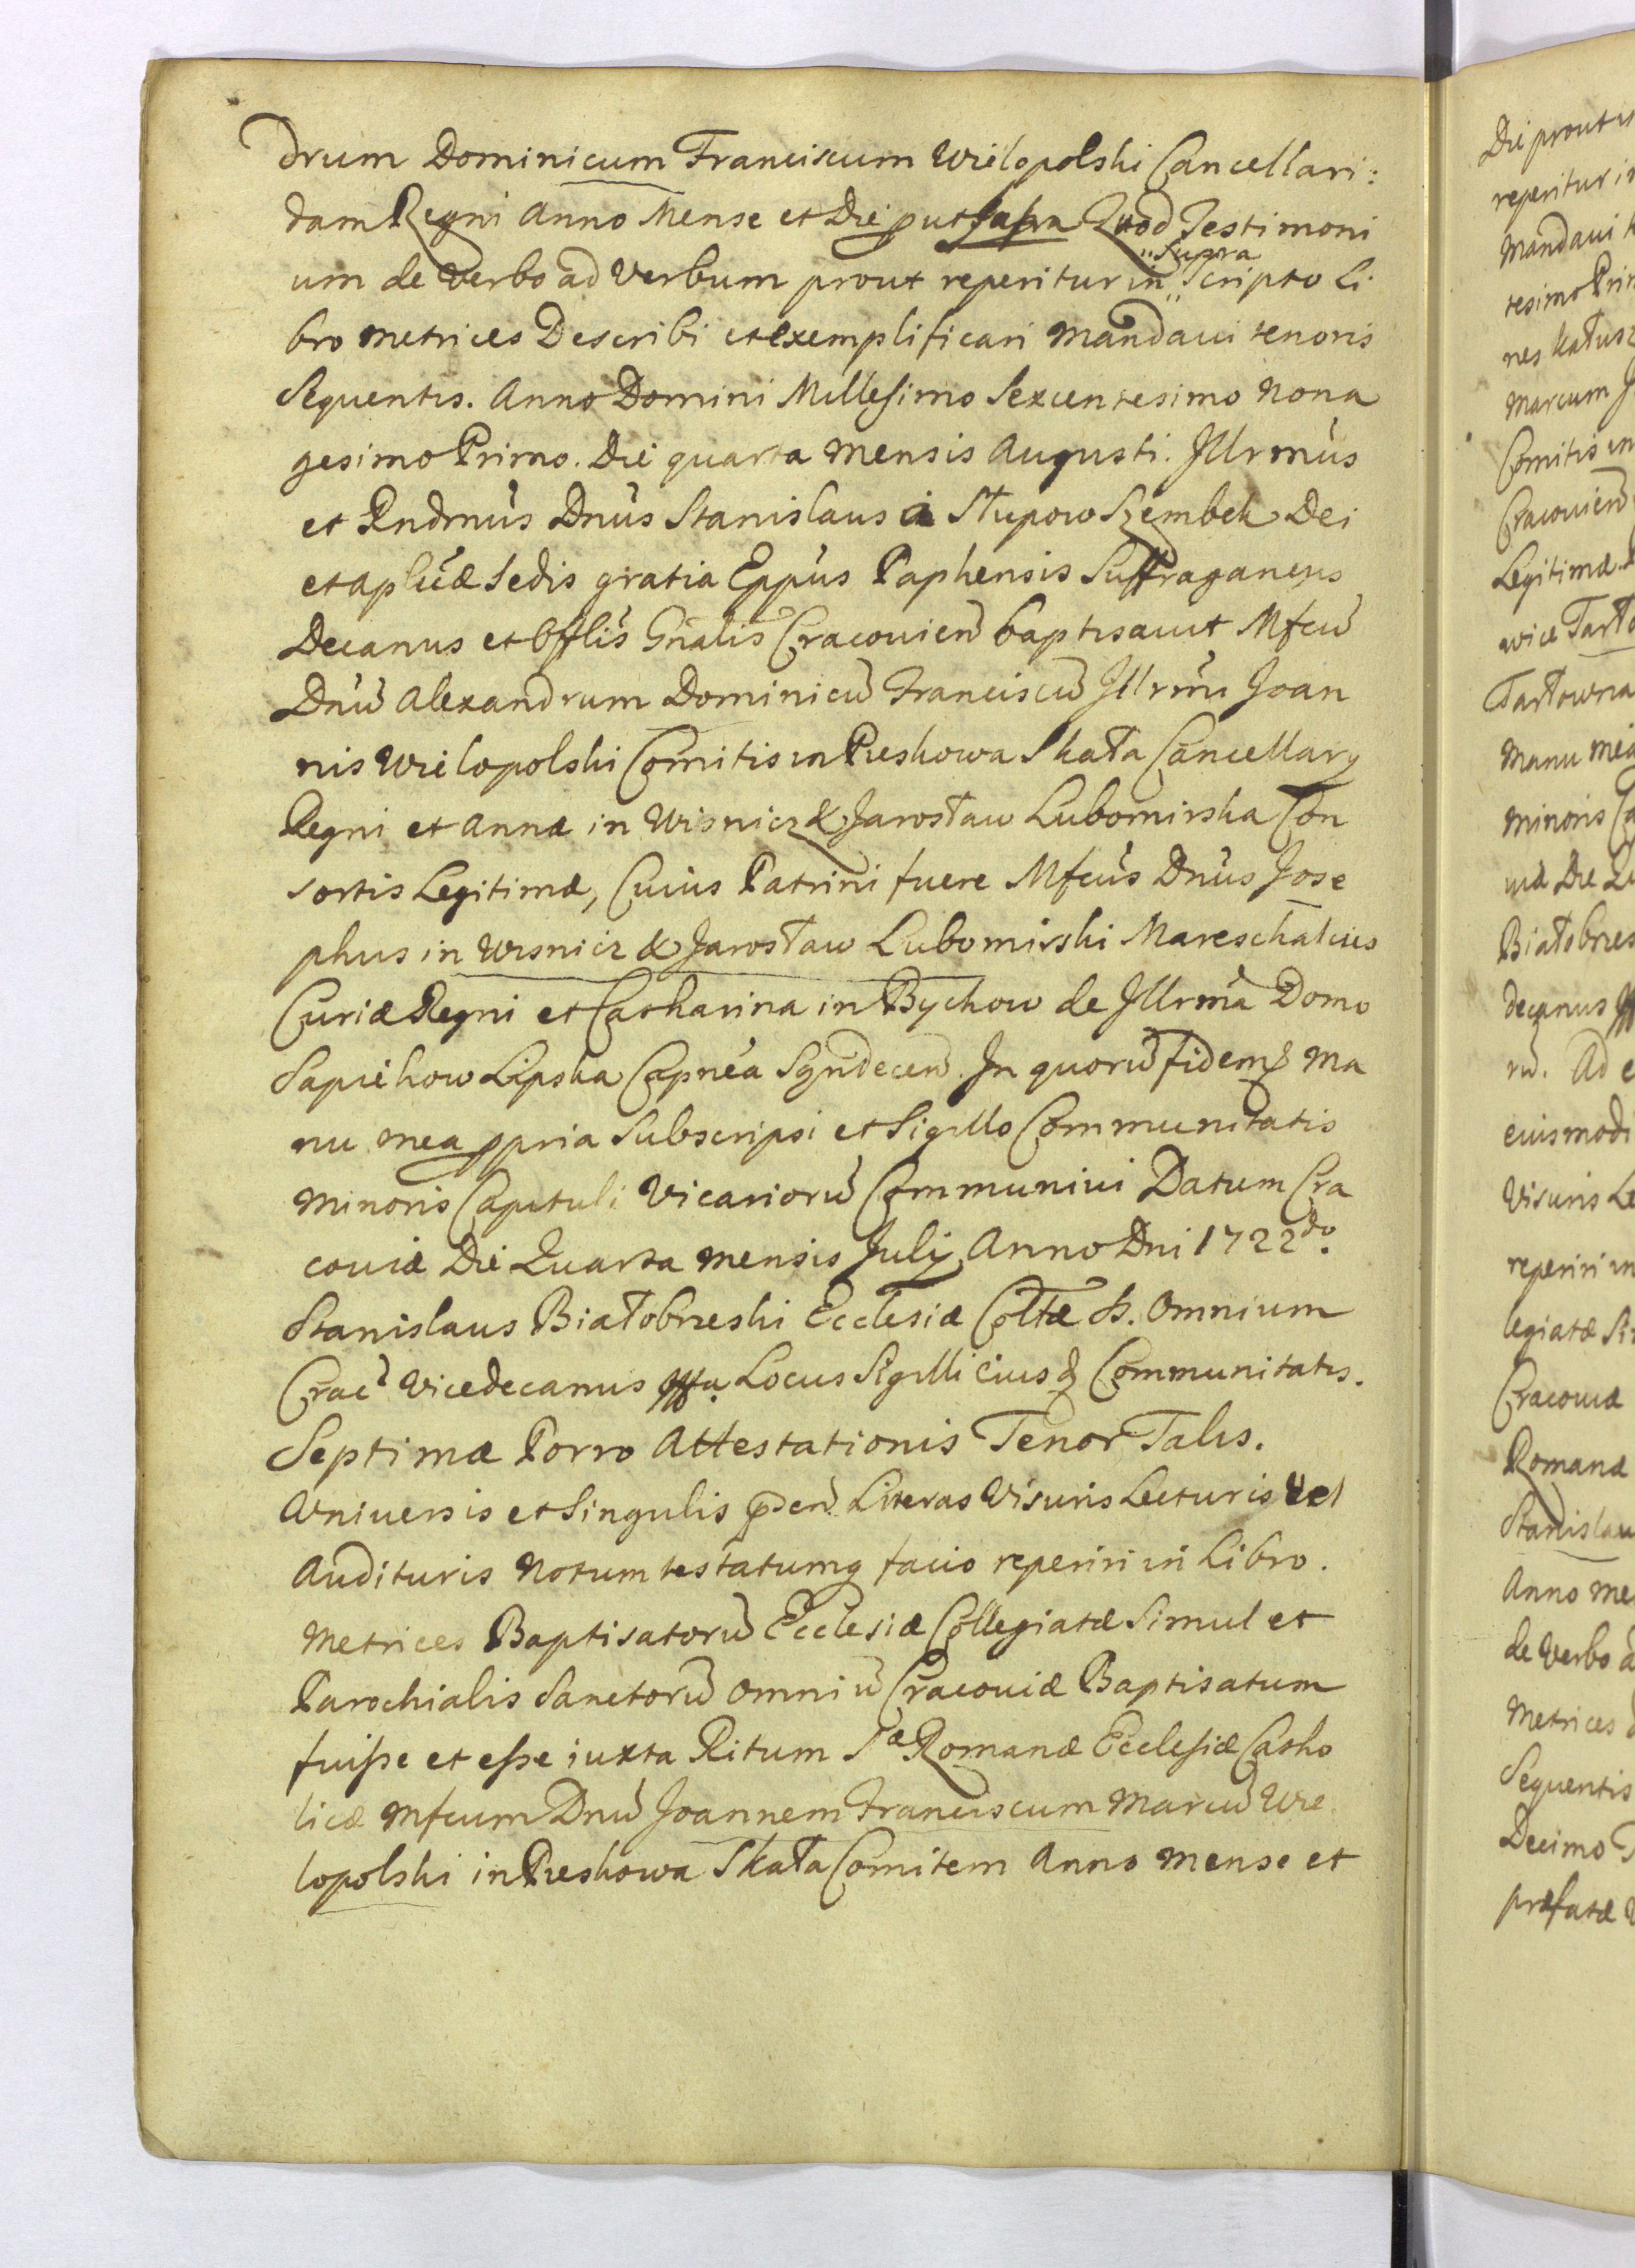 drum Dominicum Franciscum Wielopolski Cancellari:
dam Regni Anno Mense et Die put supra Quod Testimoni
um de Verbo ad Verbum prout reperitur in "Supra" scripto Li
bro metrices Describi et exemplificari mandavi tenoris
Sequentis. Anno Domini Millesimo Sexcentesimo Nona
gesimo Primo. Die quarta mensis Augusti. Illrmus
et Rndmus Dnus Stanislaus à Słupow Szembek Dei
et aplicæ Sedis gratia Eppus Paphensis Suffraganeus
Decanus et Offlis Gnalis Cracovien baptisavit Mfcu
Dnu Alexandrum Dominicu Franciscu Illrmi Joan
nis Wielopolski Comitis in Pieskowa Skała Cancellary
Regni et Annæ in Wisnicz & Jarosław Lubomirska Con
sortis Legitimæ, Cuius Patrini fuere Mfcus Dnus Jose
phus in Wisnicz & Jarosław Lubomirski Mareschalcus
Curiæ Regni et Catharina in Bychow de Illrma Domo
Sapiehow Lipska Capnea Syndecen. In quoru fidemq ma
nu mea ppria Subscripsi et Sigillo Communitatis
minoris Capituli Vicarioru Communivi Datum Cra
coviæ Die Quarta mensis July Anno Dni 1722do.
Stanislaus Białobrzeski Ecclesiæ Coltæ SS. Omnium
Crac Vicedecanus Locus Sigilli eiusq Communitatis.
Septimæ Porro Attestationis Tenor Talis.
Universis et Singulis pden Literas Visuris Lecturis Vel
Audituris Notum testatumq facio reperiri in Libro.
metrices Baptisatoru Ecclesiæ Collegiatæ Simul et
Parochialis Sanctoru Omniu Cracoviæ Baptisatum
fuisse et esse iuxta Ritum Sæ Romanæ Ecclesiæ Catho
licæ Mfcum Dnu Joannem Franciscum Marcu Wie
lopolski in Pieskowa Skała Comitem Anno mense et
Die prout
reperitur in
Mandavi
tesimo
Marcum
Comitis in
Cracovien
Legitimæ
Tartowna
Manu mea
minoris
viæ Die
decanus
ru. Ad
eiusmodi
Visuris
reperiri in
legiatæ
Cracoviæ
Romanæ
Stanislau
Anno
de Verbo
Metrices
Sequentis
Decimo
præfatæ